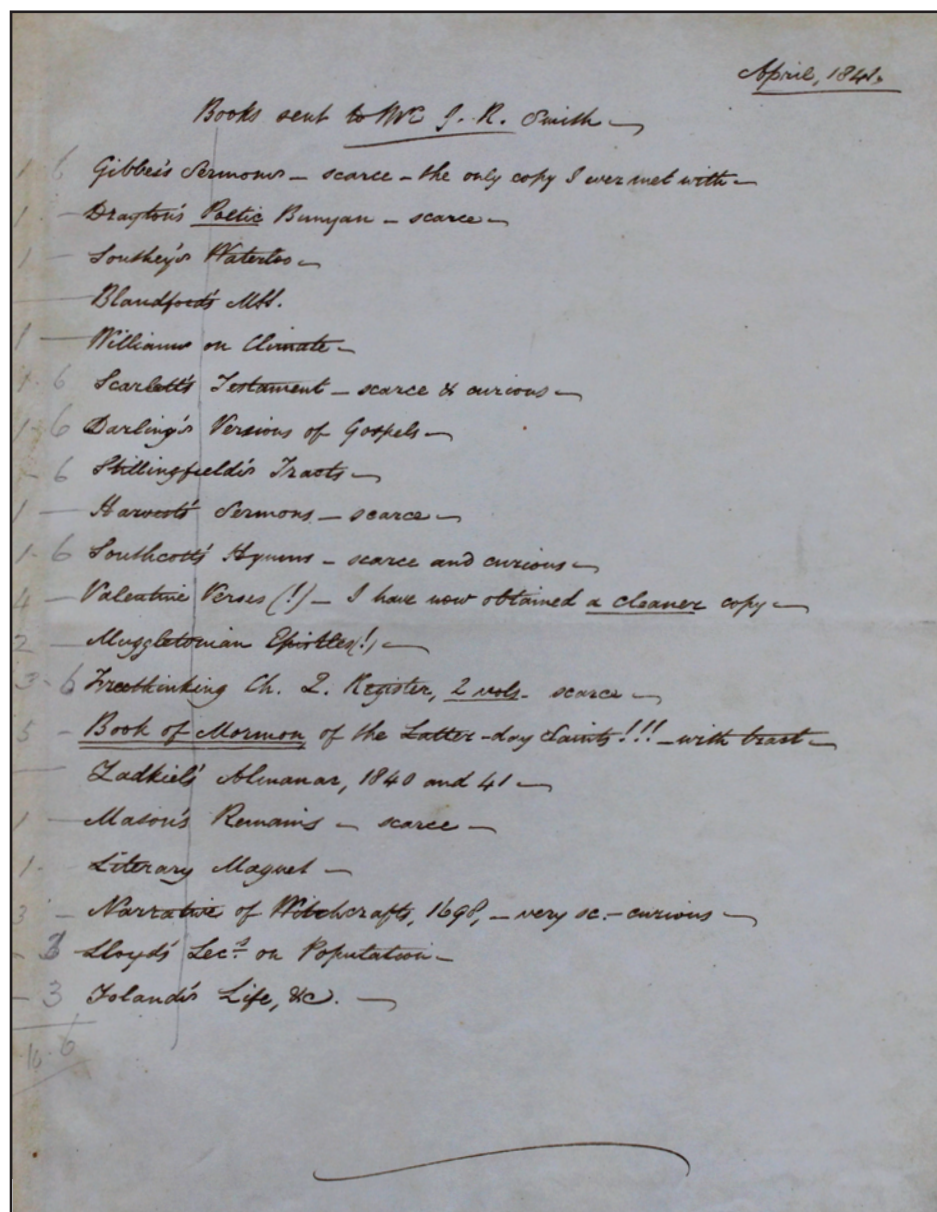 April, 1841.
Books sent to Mr J. R. Smith —
1 6 Gibbes's Sermons — scarce — the only copy I ever met with —
1 — Drayton's Poetic Bunyan — scarce —
1 — Southey's Waterloo —
— Blandford's MSS.
1 — Williams on Climate —
1. 6 Scarlett's Testament — scarce & curious —
1. 6 Darling's Versions of Gospels —
- 6 Stillingfield's Tracts —
1 — Harvest's Sermons — scarce —
1. 6 Southcott's Hymns — scarce and curious —
4 — Valentine Verses (!) — I have now obtained a cleaner copy —
2 — Muggletonian Epistles (!) —
3. 6 Freethinking Ch. Q. Register, 2 vols. scarce —
5 — Book of Mormon, of the Latter-day Saints!!! — with tract —
— Zadkiel's Almanac, 1840 and 41 —
1 — Mason's Remains — scarce —
1. Literary Magnet —
3 — Narrative of Witchcrafts, 1698, — very sc. — curious —
- Lloyd's Lecs. on Population —
- 3 Toland's Life, &c. —
6